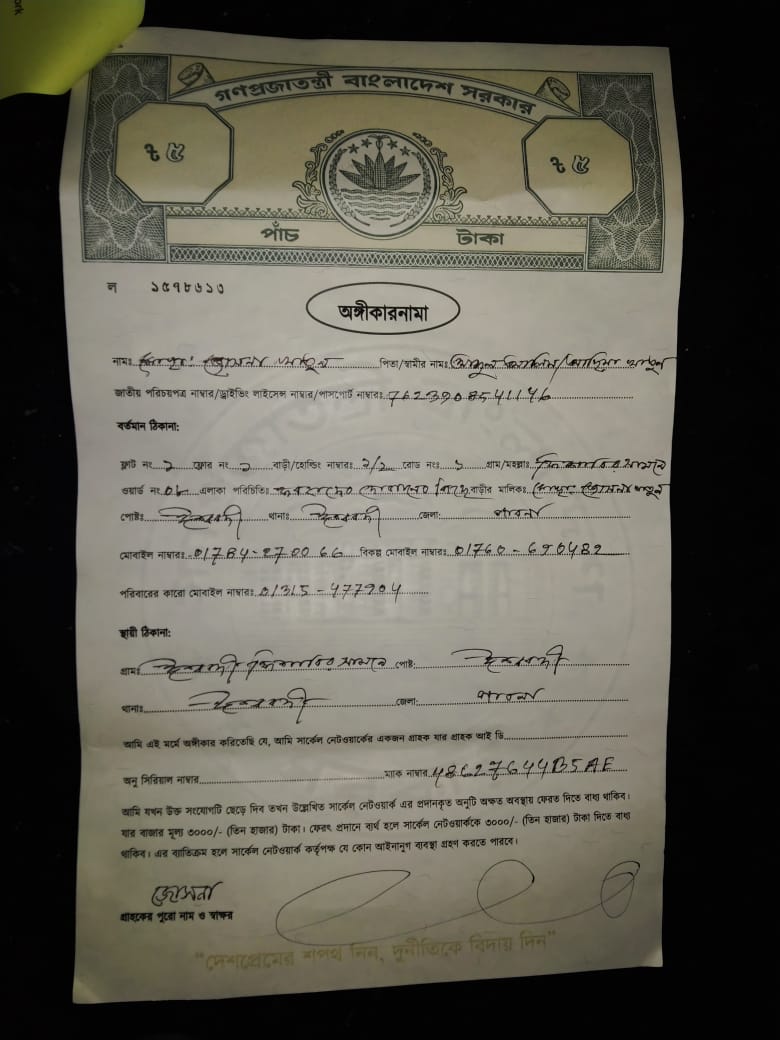 গণপ্রজাতন্ত্রী বাংলাদেশ সরকার
৳ ৫ ৳ ৫
পাঁচ টাকা
ল ১৫৭৮৬১৩
অঙ্গীকারনামা
নামঃ মোছাঃ জোসনা খাতুন পিতা/স্বামীর নামঃ
জাতীয় পরিচয়পত্র নাম্বার/ড্রাইভিং লাইসেন্স নাম্বার/পাসপোর্ট নাম্বারঃ 7623908541146
বর্তমান ঠিকানা:
ফ্লাট নং ১ ফ্লোর নং ১ বাড়ী/হোল্ডিং নাম্বারঃ রোড নংঃ ১ গ্রাম/মহল্লাঃ
ওয়ার্ড নং 06 এলাকা পরিচিতিঃ বাড়ীর মালিকঃ মোছাঃ জোসনা খাতুন
পোষ্টঃ ঈশ্বরদী থানাঃ ঈশ্বরদী জেলা: পাবনা
মোবাইল নাম্বারঃ 01784-270066 বিকল্প মোবাইল নাম্বারঃ 01760-690482
পরিবারের কারো মোবাইল নাম্বারঃ 01315-477904
স্থায়ী ঠিকানা:
গ্রামঃ ঈশ্বরদী সামনে পোষ্ট: ঈশ্বরদী
থানাঃ ঈশ্বরদী জেলা: পাবনা
আমি এই মর্মে অঙ্গীকার করিতেছি যে, আমি সার্কেল নেটওয়ার্কের একজন গ্রাহক যার গ্রাহক আই ডি
অনু সিরিয়াল নাম্বার ম্যাক নাম্বার 48627644B5AE
আমি যখন উক্ত সংযোগটি ছেড়ে দিব তখন উল্লেখিত সার্কেল নেটওয়ার্ক এর প্রদানকৃত অনুটি অক্ষত অবস্থায় ফেরত দিতে বাধ্য থাকিব।
যার বাজার মূল্য ৩০০০/- (তিন হাজার) টাকা। ফেরৎ প্রদানে ব্যর্থ হলে সার্কেল নেটওয়ার্ককে ৩০০০/- (তিন হাজার) টাকা দিতে বাধ্য
থাকিব। এর ব্যতিক্রম হলে সার্কেল নেটওয়ার্ক কর্তৃপক্ষ যে কোন আইনানুগ ব্যবস্থা গ্রহণ করতে পারবে।
জোসনা
গ্রাহকের পুরো নাম ও স্বাক্ষর
"দেশপ্রেমের শপথ নিন, দুর্নীতিকে বিদায় দিন"